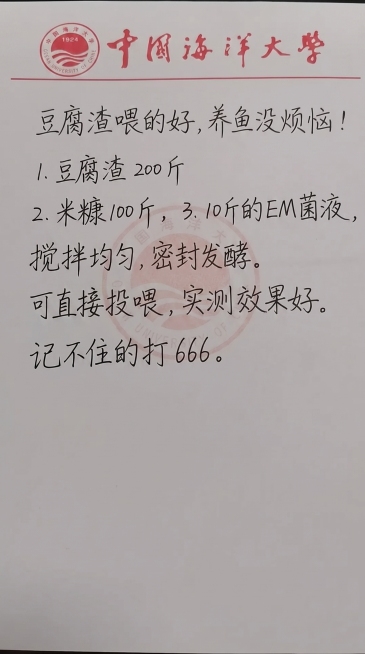 1924
中国海洋大学
豆腐渣喂的好,养鱼没烦恼!
1. 豆腐渣 200斤
2. 米糠100斤, 3. 10斤的EM菌液,
搅拌均匀,密封发酵。
可直接投喂,实测效果好。
记不住的打 666。